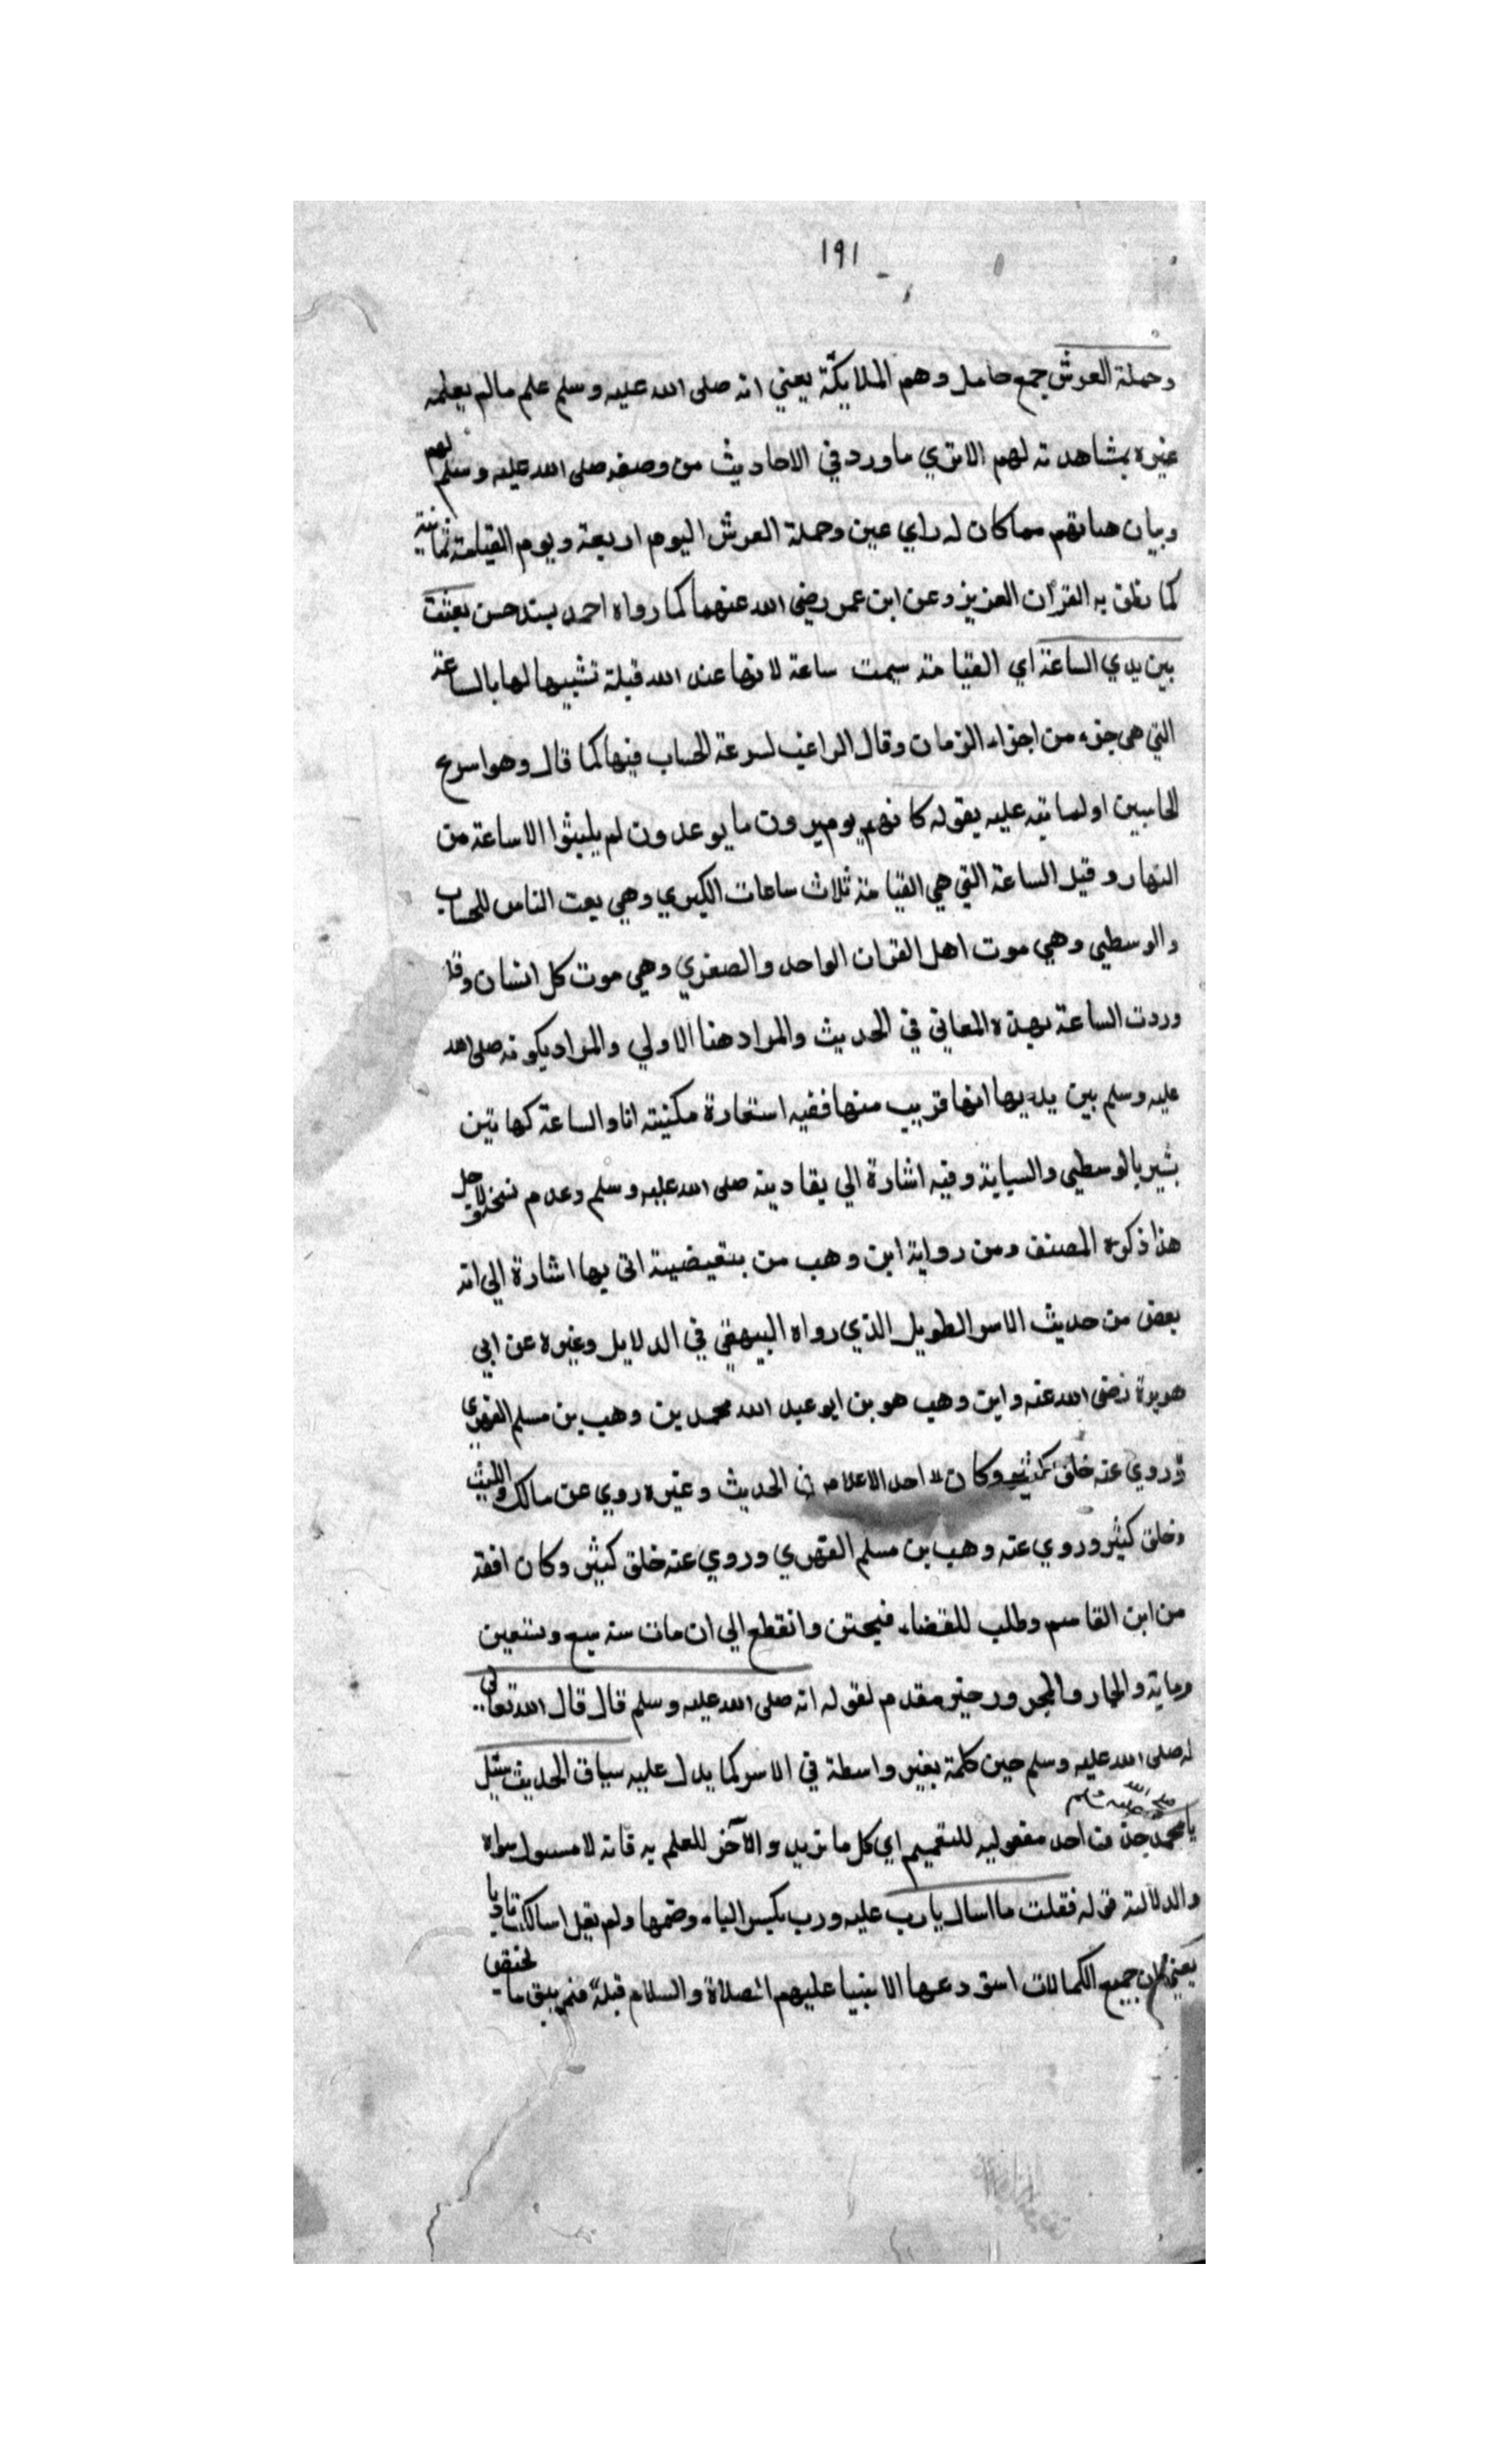 ١٩١
وحملة العرش جمع حامل وهم الملايكة يعني انه صلى الله عليه وسلم علم مالم يعلمه
غيره بمشاهدته لهم الاتري ماورد في الاحاديث من وصفه صلى الله عليه وسلم لهم
وبيان صفاتهم مما كان له راي عين وحملة العرش اليوم اربعة ويوم القيامة ثمانية
كما نطق به القرآن العزيز وعن ابن عمر رضي الله عنهما كما رواه احمد بسند حسن بعثت
بين يدي الساعة اي القيامة سميت ساعة لانها عند الله قبلة تشبيها لها بالساعة
التي هي جزء من اجزاء الزمان وقال الراغب لسرعة الحساب فيها كما قال وهو اسرع
الحاسبين اولما نبه عليه بقوله كانهم يوم يرون ما يوعدون لم يلبثوا الا ساعة من
النهار وقيل الساعة التي هي القيامة ثلاث ساعات الكبري وهي بعث الناس للحساب
والوسطي وهي موت اهل القران الواحد والصغري وهي موت كل انسان وقد
وردت الساعة بهذه المعاني في الحديث والمراد هنا الاولي والمراد بكونه صلى الله
عليه وسلم بين يديها انها قريب منها ففيه استعارة مكنيته انا والساعة كهاتين
يشير بالوسطي والسبابة وفيه اشارة الي بقا دينه صلى الله عليه وسلم وعدم نسخه لاجل
هذا ذكره المصنف ومن رواية ابن وهب من بتعيضية اتى بها اشارة الي انه
بعض من حديث الاسرا الطويل الذي رواه البيهقي في الدلايل وغيره عن ابي
هريرة رضى الله عنه وابن وهب هو بن ابو عبد الله محمد بن وهب بن مسلم الفهري
وروي عنه خلق كثير وكان احد الاعلام في الحديث وغيره روي عن مالك والليث
وخلق كثير وروي عنه وهب بن مسلم الفهري وروي عنه خلق كثير وكان افقه
من ابن القاسم وطلب للقضاء فيجتن وانقطع الي ان مات سنة سبع وتسعين
وماية والجار والمجرور خبر مقدم لقوله انه صلى الله عليه وسلم قال قال الله تعالى
له صلى الله عليه وسلم حين كلمة بغير واسطة في الاسرا كما يدل عليه سياق الحديث سيل
يا محمد صلى الله عليه وسلم حذف احد مفعوليه للتعميم اي كل ما تريد والآخر للعلم به فانه لا مسول سواه
والدلالة قوله فقلت ما اسال يا رب عليه ورب بكسر الباء وضمها ولم يقل اسالك تادبا
يعني ان جميع الكمالات استودعها الانبيا عليهم الصلاة والسلام قبلة فلم يبق ما يختص